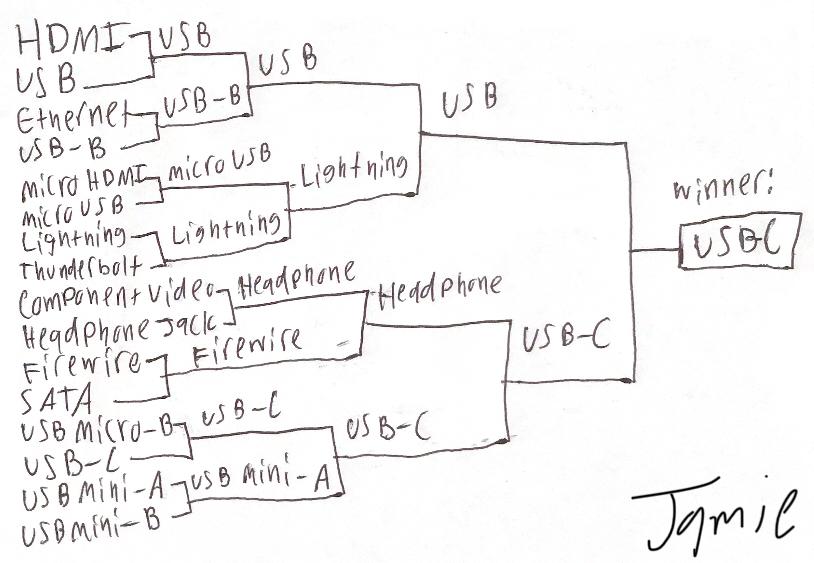 HDMI
USB
Ethernet
USB-B
micro HDMI
micro USB
Lightning
Thunderbolt
Component Video
Headphone Jack
Firewire
SATA
USB Micro-B
USB-C
USB Mini-A
USB Mini-B
USB
USB-B
micro USB
Lightning
Headphone
Firewire
USB-C
USB Mini-A
USB
Lightning
Headphone
USB-C
USB
USB-C
winner:
USB-C
Jamie